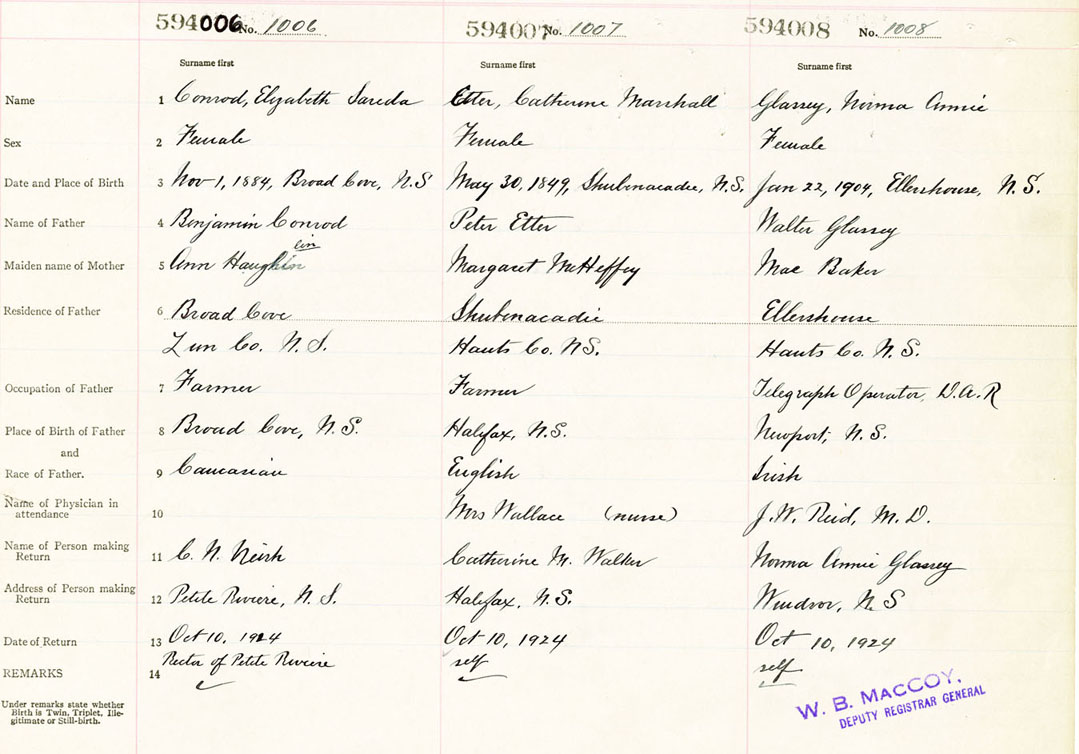 594006 No. 1006 594007 No. 1007 594008 No. 1008
Surname first Surname first Surname first
Name 1 Conrod, Elizabeth Sareda Etter, Catherine Marshall Glassey, Norma Annie
Sex 2 Female Female Female
Date and Place of Birth 3 Nov 1, 1884, Broad Cove, N.S May 30, 1849, Shubenacadie, N.S. Jan 22, 1904, Ellershouse, N.S.
Name of Father 4 Benjamin Conrod Peter Etter Walter Glassey
lin
Maiden name of Mother 5 Ann Haughlin Margaret McHeffey Mae Baker
Residence of Father 6 Broad Cove Shubenacadie Ellershouse
Lun Co. N.S. Hants Co. NS. Hants Co. N.S.
Occupation of Father 7 Farmer Farmer Telegraph Operator, D.A.R
Place of Birth of Father 8 Broad Cove, N.S. Halifax, N.S. Newport, N.S.
and
Race of Father. 9 Caucasian English Irish
Name of Physician in
attendance 10 Mrs Wallace (nurse) J.W. Reid, M.D.
Name of Person making
Return 11 C. N. Neish Catherine M. Walker Norma Annie Glassey
Address of Person making
Return 12 Petite Riviere, N.S. Halifax, N.S. Windsor, N.S
Date of Return 13 Oct 10, 1924 Oct 10, 1924 Oct 10, 1924
REMARKS 14 Rector of Petite Riviere self self
Under remarks state whether
Birth is Twin, Triplet, Ille-
gitimate or Still-birth.
W. B. MACCOY,
DEPUTY REGISTRAR GENERAL